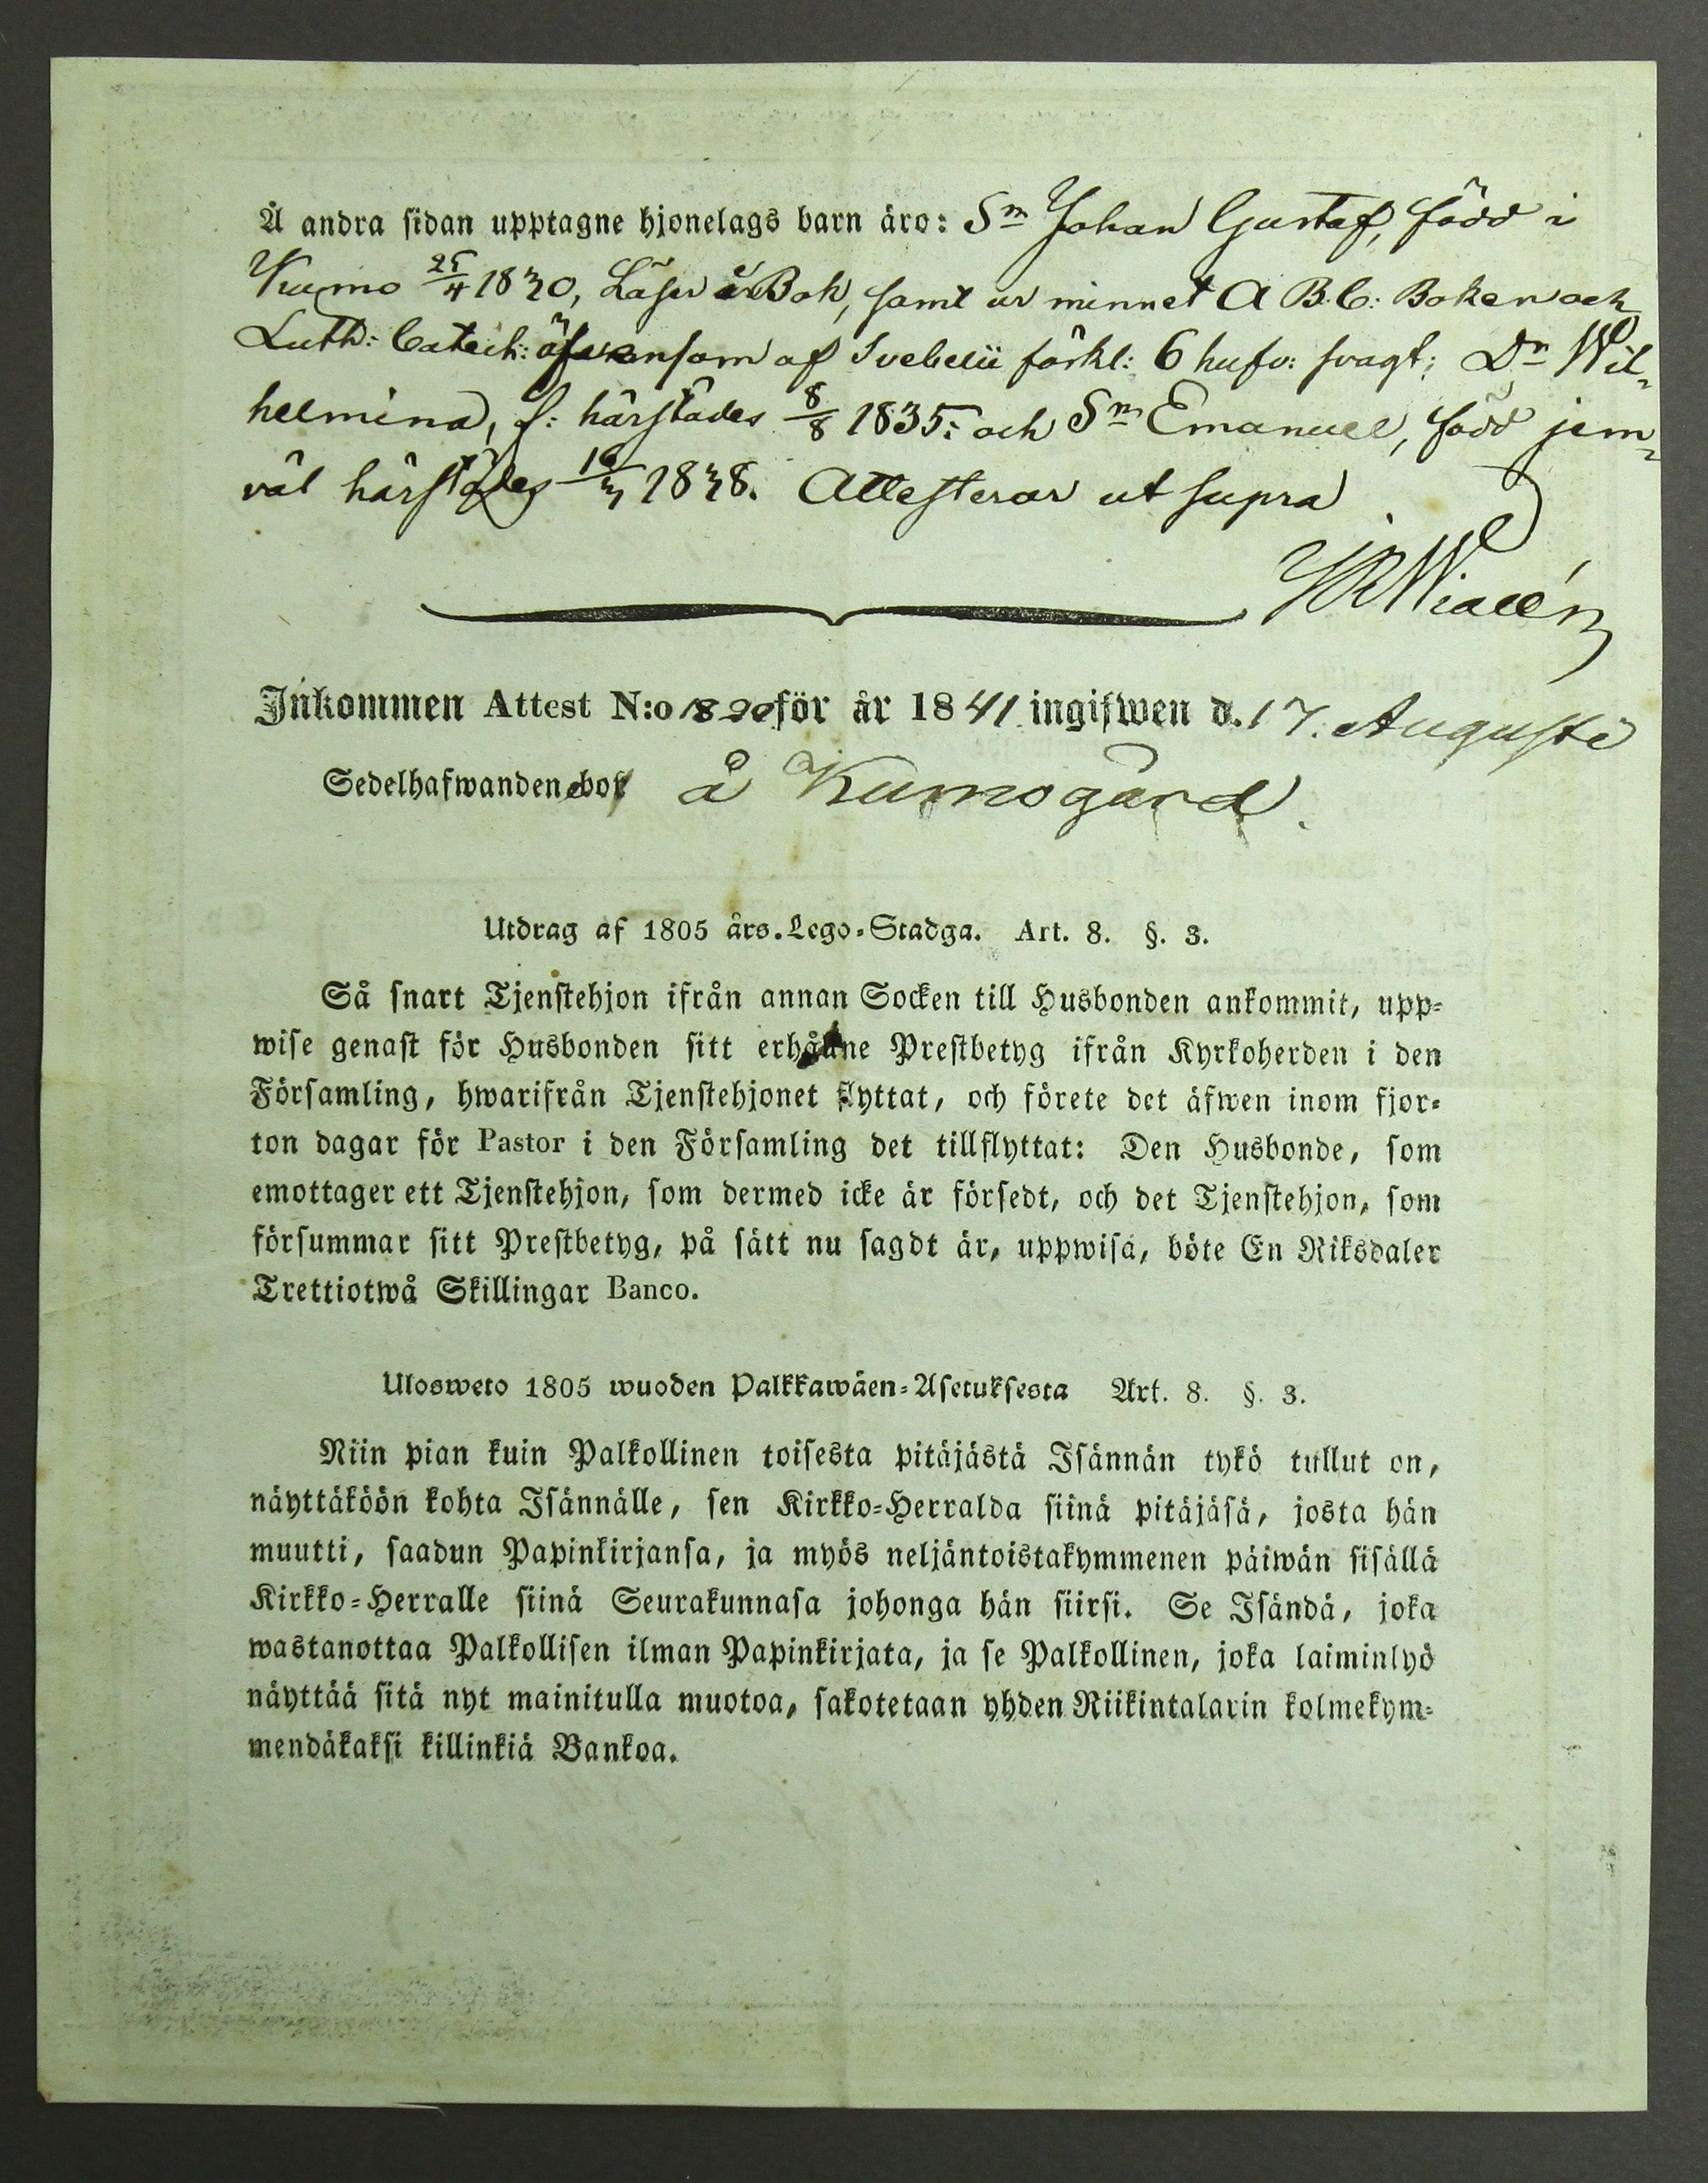 Å andra sidan upptagne hjonelags barn äro: Sn Johan Gustaf, född i
Kumo 25/4 1830, Läser i Bok, samt ur minnet A B.C: Boken och
Luth: Catech: äfvensom af Svebelii förkl: 6 hufv: svagt; Dn Wil-
helmina, f: härstädes 8/8 1835; och Sn Emanuel, född jem-
väl härstädes 1838. Attesterar ut supra
Inkommen Attest N:o för år 1841 ingifwen d. 17. Augusti
Sedelhafwanden bor å Kumogård.
Utdrag af 1805 års Lego-Stadga. Art. 8. §. 3.
Så snart Tjenstehjon ifrån annan Socken till Husbonden ankommit, upp-
wise genast för Husbonden sitt erhållne Prestbetyg ifrån Kyrkoherden i den
Församling, hwarifrån Tjenstehjonet flyttat, och förete det äfwen inom fjor-
ton dagar för Pastor i den Församling det tillflyttat: Den Husbonde, som
emottager ett Tjenstehjon, som dermed icke är försedt, och det Tjenstehjon, som
försummar sitt Prestbetyg, på sätt nu sagdt är, uppwisa, böte En Riksdaler
Trettiotwå Skillingar Banco.
Ulosweto 1805 wuoden Palkkawäen-Asetuksesta Art. 8. §. 3.
Niin pian kuin Palkollinen toisesta pitäjästä Isännän tykö tullut on,
näyttäköön kohta Isännälle, sen Kirkko-Herralda siinä pitäjäsä, josta hän
muutti, saadun Papinkirjansa, ja myös neljäntoistakymmenen päiwän sisällä
Kirkko-Herralle siinä Seurakunnasa johonga hän siirsi. Se Isändä, joka
wastanottaa Palkollisen ilman Papinkirjata, ja se Palkollinen, joka laiminlyö
näyttää sitä nyt mainitulla muotoa, sakotetaan yhden Riikintalarin kolmekym-
mendäkaksi killinkiä Bankoa.